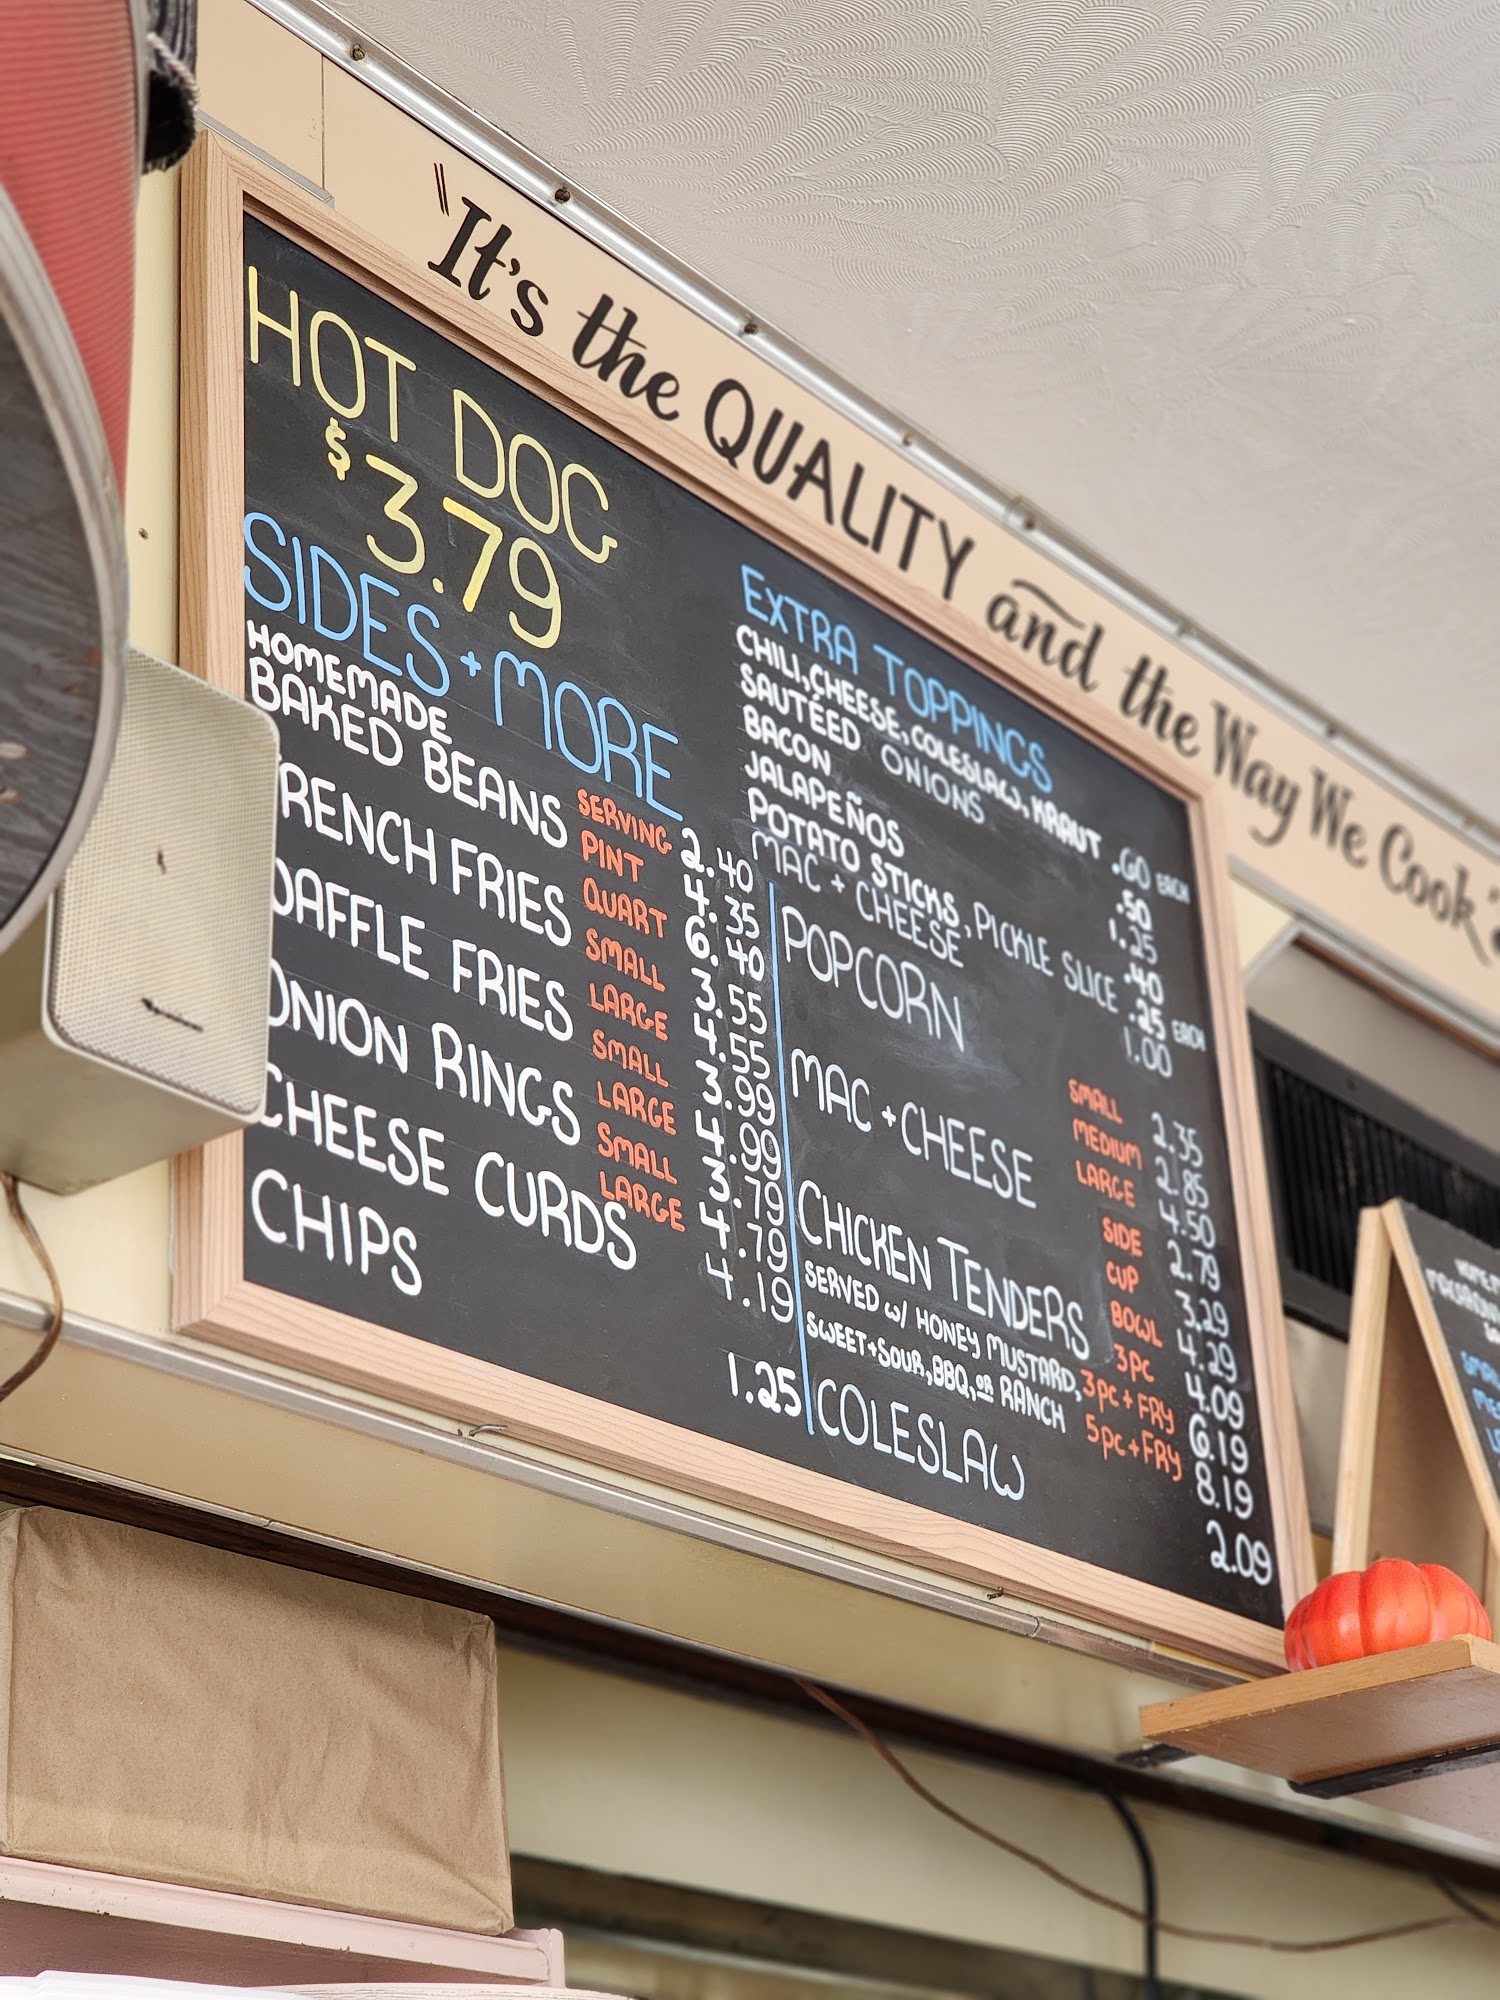 "It's the QUALITY and the Way We Cook"
HOT DOG
$3.79
SIDES + MORE
HOMEMADE
BAKED BEANS
SERVING 2.40
PINT 4.35
QUART 6.40
FRENCH FRIES
SMALL 3.55
LARGE 4.55
WAFFLE FRIES
SMALL 3.99
LARGE 4.99
ONION RINGS
SMALL 3.79
LARGE 4.79
CHEESE CURDS 4.19
CHIPS 1.25
EXTRA TOPPINGS
CHILI, CHEESE, COLESLAW, KRAUT .60 EACH
SAUTÉED ONIONS .50
BACON 1.25
JALAPEÑOS .40
POTATO STICKS, PICKLE SLICE .25 EACH
MAC + CHEESE 1.00
POPCORN
SMALL 2.35
MEDIUM 2.85
LARGE 4.50
MAC + CHEESE
SIDE 2.79
CUP 3.29
BOWL 4.29
CHICKEN TENDERS
3PC 4.09
SERVED W/ HONEY MUSTARD, 3PC + FRY 6.19
SWEET + SOUR, BBQ, OR RANCH 5PC + FRY 8.19
COLESLAW 2.09